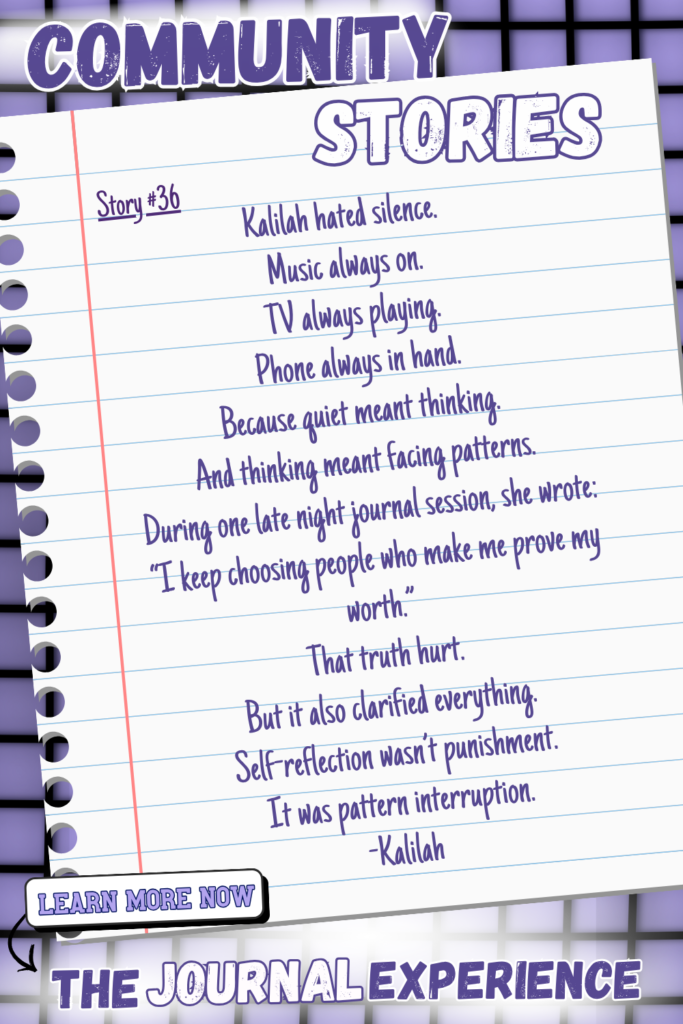 COMMUNITY
STORIES
Story #36
Kalilah hated silence.
Music always on.
TV always playing.
Phone always in hand.
Because quiet meant thinking.
And thinking meant facing patterns.
During one late night journal session, she wrote:
“I keep choosing people who make me prove my
worth.”
That truth hurt.
But it also clarified everything.
Self-reflection wasn’t punishment.
It was pattern interruption.
-Kalilah
LEARN MORE NOW
THE JOURNAL EXPERIENCE